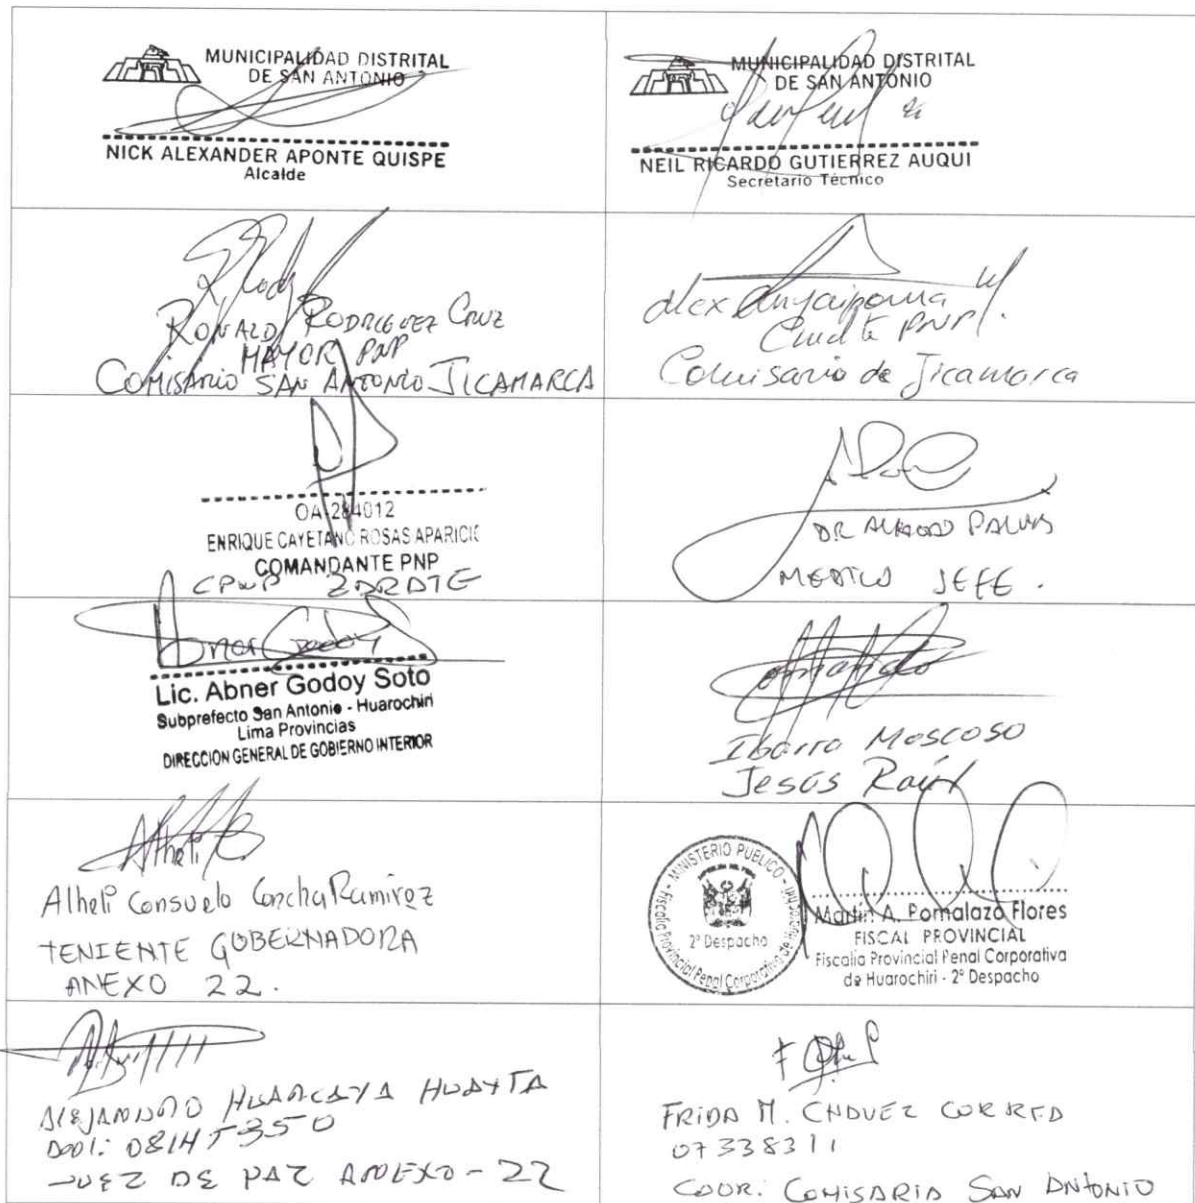 MUNICIPALIDAD DISTRITAL
DE SAN ANTONIO
NICK ALEXANDER APONTE QUISPE
Alcalde
MUNICIPALIDAD DISTRITAL
DE SAN ANTONIO
NEIL RICARDO GUTIERREZ AUQUI
Secretario Técnico
RONALD RODRIGUEZ CRUZ
MAYOR PNP
COMISARIO SAN ANTONIO JICAMARCA
Alex
PNP
Comisario de Jicamarca
OA-284012
ENRIQUE CAYETANO ROSAS APARICIO
COMANDANTE PNP
CPNP ZARATE
DR
MEDICO JEFE.
Abner Godoy
Lic. Abner Godoy Soto
Subprefecto San Antonio - Huarochiri
Lima Provincias
DIRECCION GENERAL DE GOBIERNO INTERIOR
Ibarra Moscoso
Jesús Raúl
Atheli
Alheli Consuelo Concha Ramirez
TENIENTE GOBERNADORA
ANEXO 22.
MINISTERIO PUBLICO
Fiscalía Provincial Penal Corporativa de Huarochirí
2° Despacho
Martín A. Pomalazo Flores
FISCAL PROVINCIAL
Fiscalía Provincial Penal Corporativa
de Huarochiri - 2° Despacho
ALEJANDRO HUARCAYA HUAYTA
JUEZ DE PAZ ANEXO - 22
FRIDA M. CHAVEZ
07338311
COOR. COMISARIA SAN ANTONIO